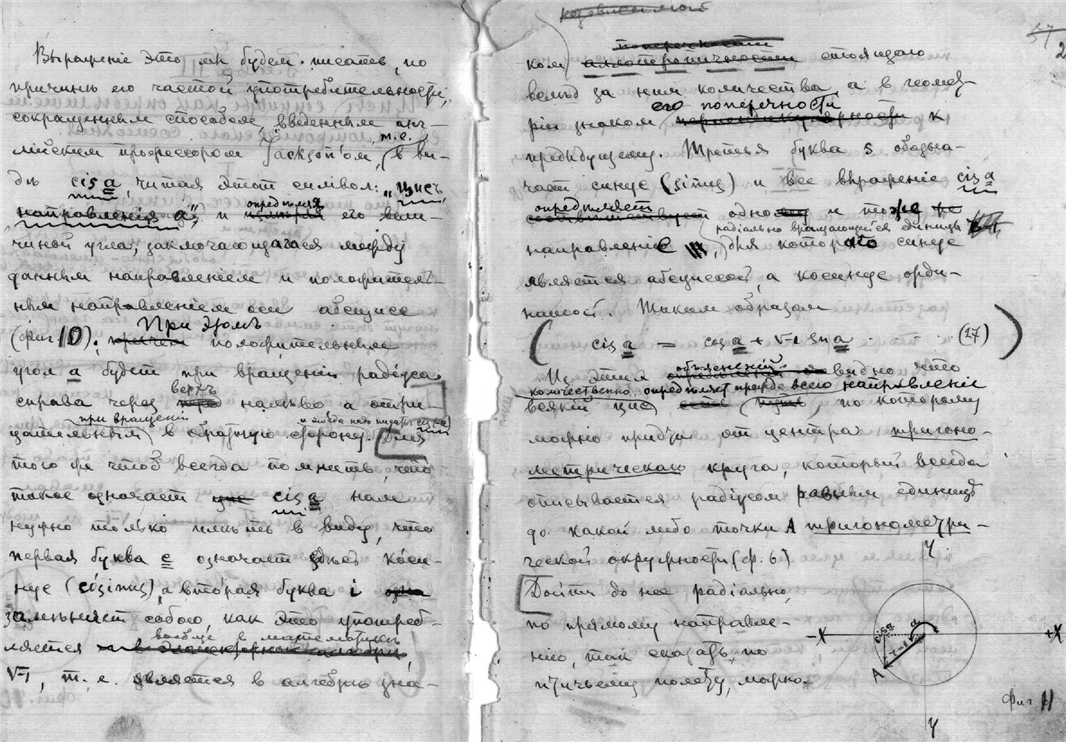 Выраженіе это мы будемъ писать, по
причинѣ его частой употребительности,
сокращеннымъ способомъ введеннымъ ан-
лійскимъ профессоромъ Jackson'омъ, т.е. въ ви-
дѣ cis a читая этотъ символъ: „цисъ
направленія а", и опредѣляя его вели-
чиной угла, заключающагося между
даннымъ направленіемъ и положитель-
нымъ направленіемъ оси абсциссъ
(фиг 10). При этомъ положительнымъ
угол a будетъ при вращеніи радіуса
справа черезъ верхъ налѣво а отри-
цательнымъ при вращеніи въ обратную сторону. Для
того же чтобъ всегда помнить, что
такое означаетъ cis a намъ
нужно только имѣть въ виду, что
первая буква c означаетъ здѣсь коси-
нусъ (cosinus), а вторая буква i
замѣняетъ собою, какъ это употреб-
ляется вообще въ математикѣ
√-1, т. е. является въ алгебрѣ зна-
57
2
комъ стоящаго
вслѣдъ за нимъ количества, а въ геомет-
ріи знакомъ его поперечности къ
предыдущему. Третья буква s обозна-
чаетъ синусъ (sinus) и все выраженіе cis a
опредѣляетъ одно и то же
направленіе радіально вращающейся единицы
для котораго синусъ
является абсциссой, а косинусъ орди-
натой. Такимъ образомъ
cis a = cos a + √-1 sin a . . . (27)
Изъ этихъ объясненій видно что
всякій цис количественно опредѣляетъ прежде всего направленіе
по которому
можно придти отъ центра тригоно-
метрическаго круга, который всегда
описывается радіусомъ равнымъ единицѣ
до какой либо точки A тригонометри-
ческой окружности (ф. 6)
Дойти до нея радіально,
по прямому направле-
нію, такъ сказать, по
птичьему полету, можно
y
-X
+X
cis a
a
A
y
Фиг 11